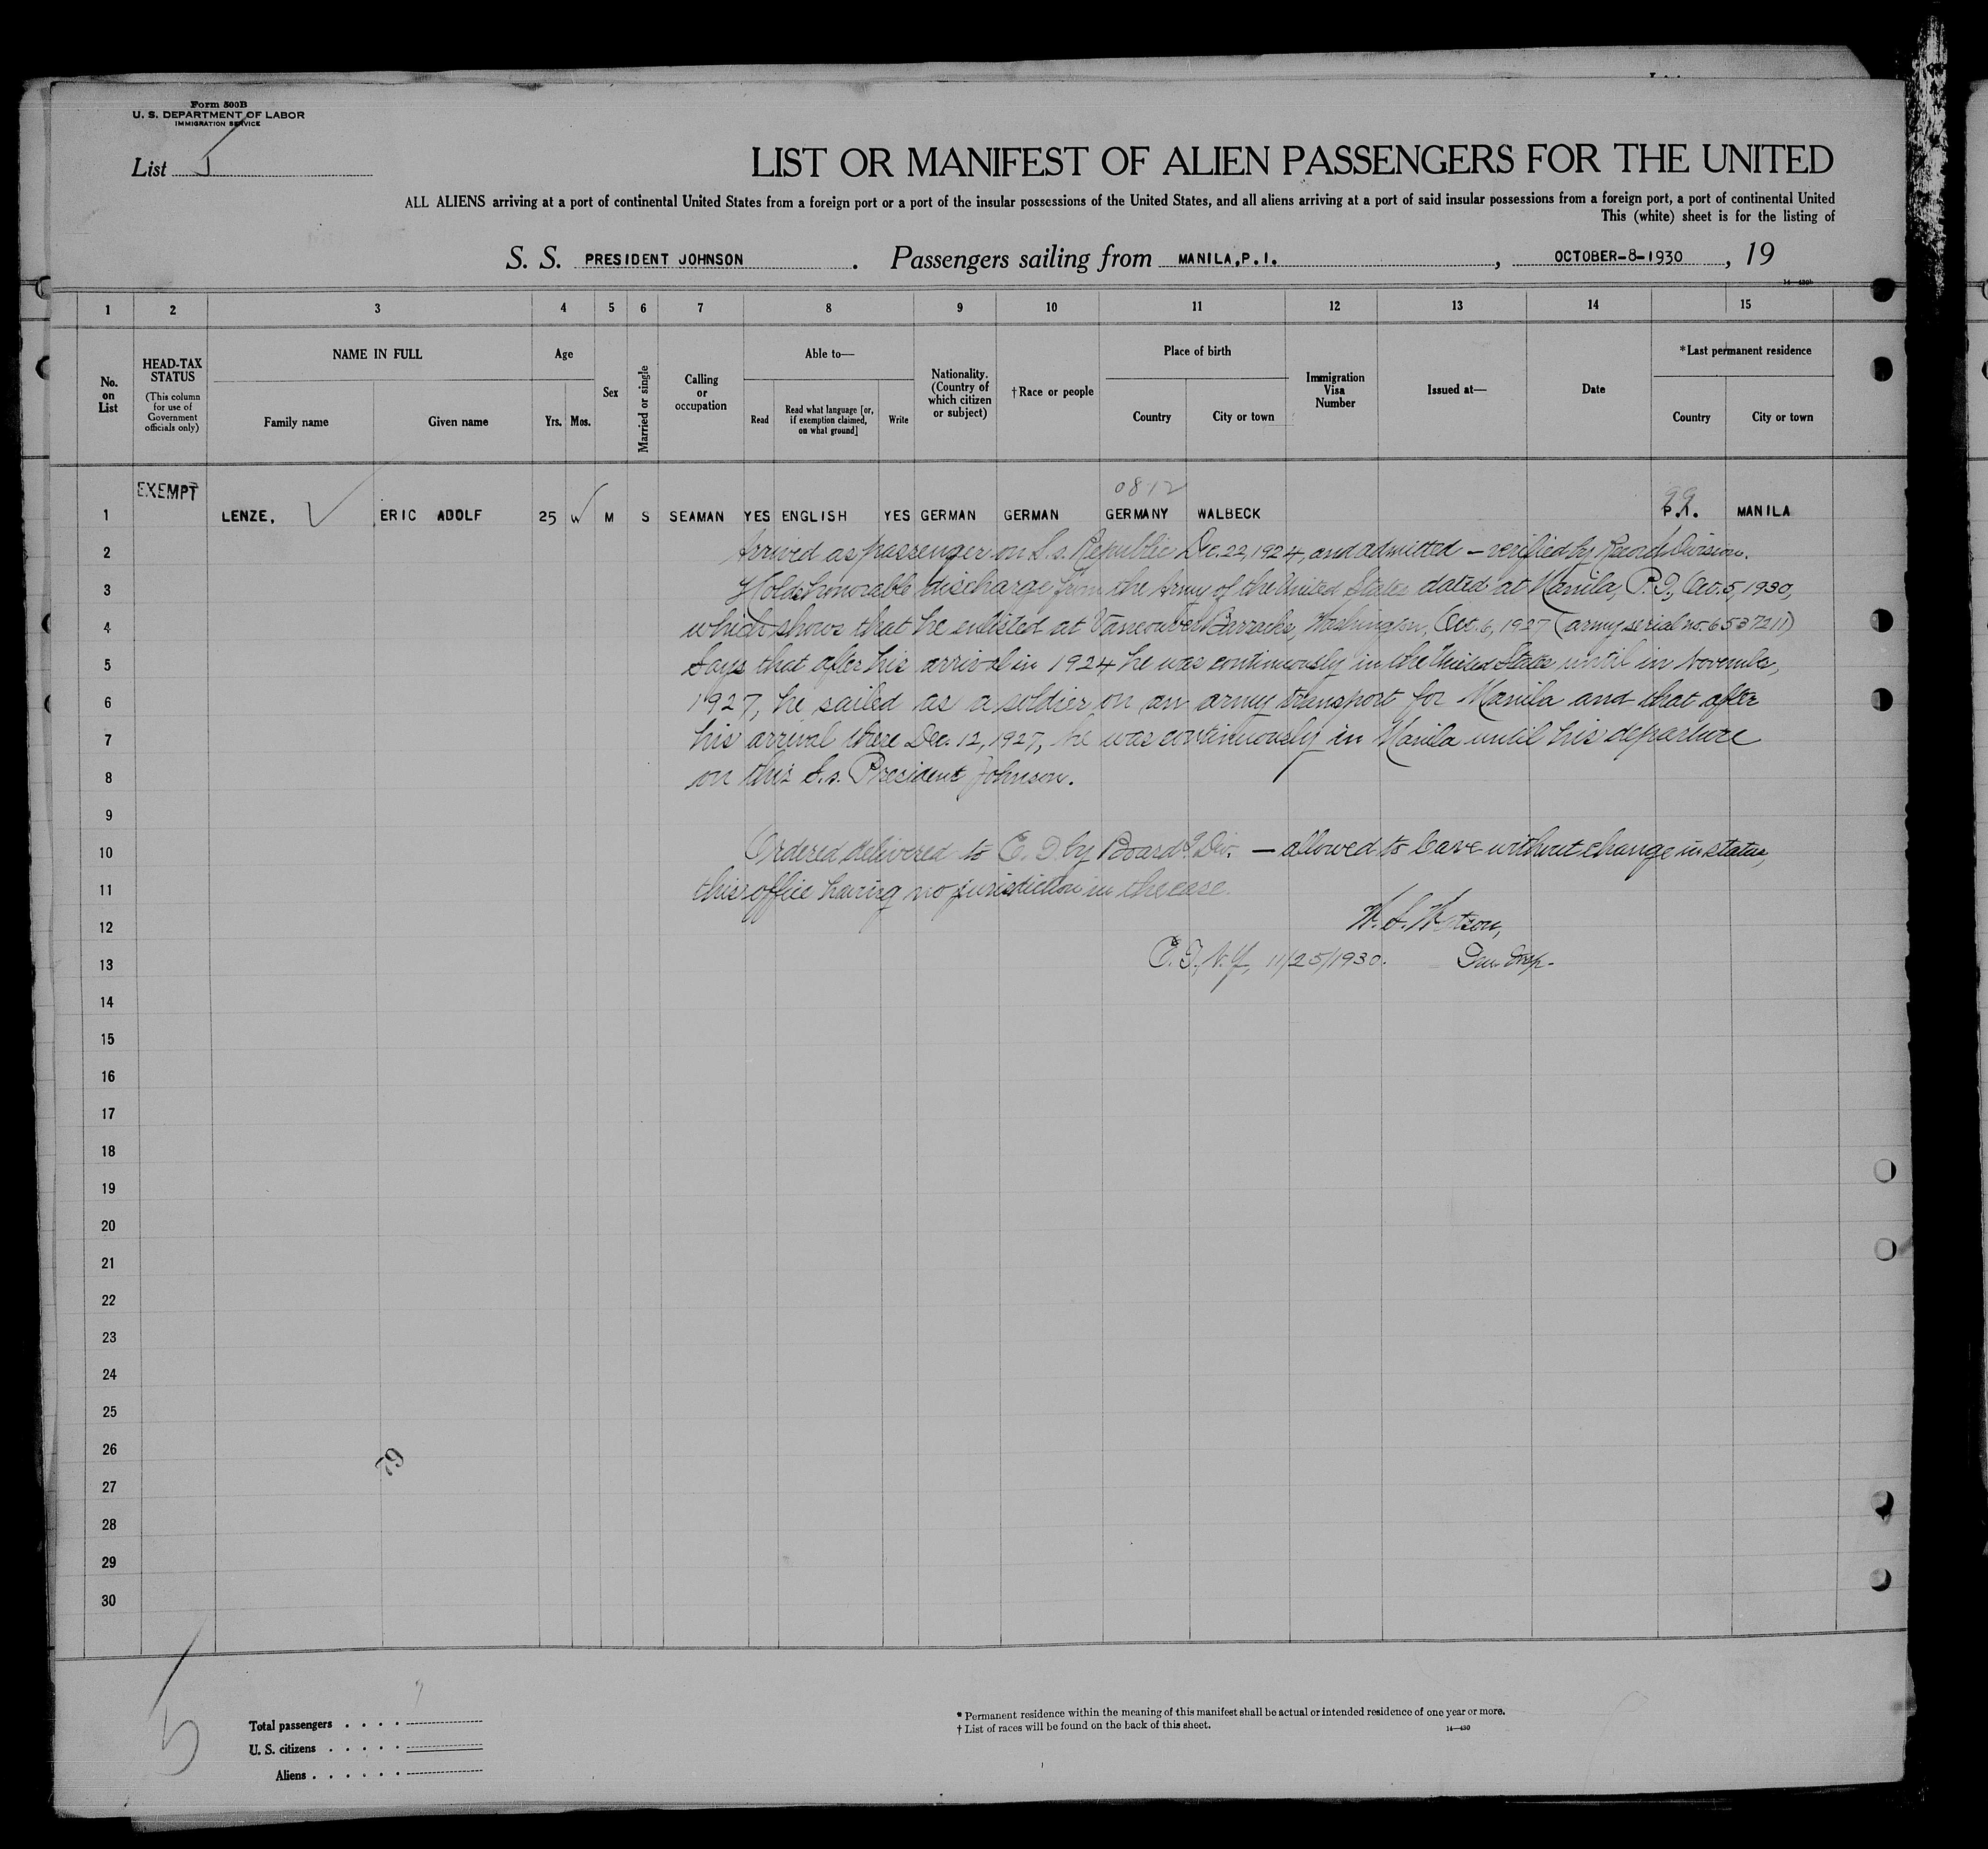 Form 500B
U. S. DEPARTMENT OF LABOR
IMMIGRATION SERVICE
List
LIST OR MANIFEST OF ALIEN PASSENGERS FOR THE UNITED
ALL ALIENS arriving at a port of continental United States from a foreign port or a port of the insular possessions of the United States, and all aliens arriving at a port of said insular possessions from a foreign port, a port of continental United
This (white) sheet is for the listing of
S. S. PRESIDENT JOHNSON . Passengers sailing from MANILA, P. I. , OCTOBER-8-1930 , 19
1 2 3 4 5 6 7 8 9 10 11 12 13 14 15
No. on List
HEAD-TAX STATUS
(This column for use of Government officials only)
NAME IN FULL
Family name
Given name
Age
Yrs.
Mos.
Sex
Married or single
Calling or occupation
Able to—
Read
Read what language [or, if exemption claimed, on what ground]
Write
Nationality. (Country of which citizen or subject)
†Race or people
Place of birth
Country
City or town
Immigration Visa Number
Issued at—
Date
*Last permanent residence
Country
City or town
EXEMPT
0812
1 LENZE, ERIC ADOLF 25 M S SEAMAN YES ENGLISH YES GERMAN GERMAN GERMANY WALBECK P.I. MANILA
2 Arrived as passenger on S.s. Republic Dec. 22, 1924, and admitted — verified by Record Division.
3 Holds honorable discharge from the Army of the United States dated at Manila, P.I., Oct. 5, 1930,
4 which shows that he enlisted at Vancouver Barracks, Washington, Oct. 6, 1927 (army serial no. 6537211)
5 Says that after his arrival in 1924 he was continuously in the United States until in November,
6 1927, he sailed as a soldier on an army transport for Manila and that after
7 his arrival there Dec. 12, 1927, he was continuously in Manila until his departure
8 on this S.s. President Johnson.
9
10 Ordered delivered to E. I. by Board'g Div. — allowed to leave without change in status,
11 this office having no jurisdiction in the case.
12 W. S. Watson,
13 E. I., N.Y., 11/25/1930. Imm. Insp.
14
15
16
17
18
19
20
21
22
23
24
25
26
27
28
29
30
5
Total passengers . . . .
U. S. citizens . . . . .
Aliens . . . . . .
* Permanent residence within the meaning of this manifest shall be actual or intended residence of one year or more.
† List of races will be found on the back of this sheet.
14—430